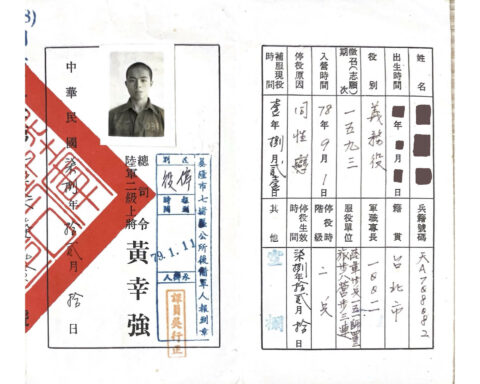 姓名
出生時間 年 月 日
役別 義務役
徵召(志願)期次 一五九三
入營時間 78年9月1日
停役原因 同性戀
補服現役時間 壹年捌月貳壹日
兵籍號碼 天A788882
籍貫 台北市
軍職專長
服役單位
停役時階級 二兵
停役生效時間 柒捌年拾貳月拾日
其他 空欄
基隆市七堵區公所後備軍人報到章
區別 後備
報到時間 79.1.11
承辦人
課員吳行正
總司令
陸軍二級上將 黃幸強
中華民國柒捌年拾貳月拾日